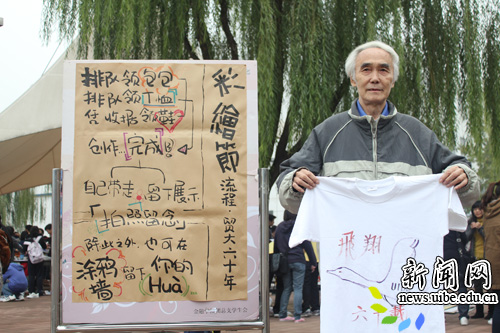 彩繪節
流程·贸大六十年
排队领包包
排队领T恤
凭收据领鞋
创作[完成]
自己带走 留下展示
「拍照留念」
除此之外,也可在
涂鸦墙 留下 你的 Huà
飛翔
六十
新闻网
news.uibe.edu.cn